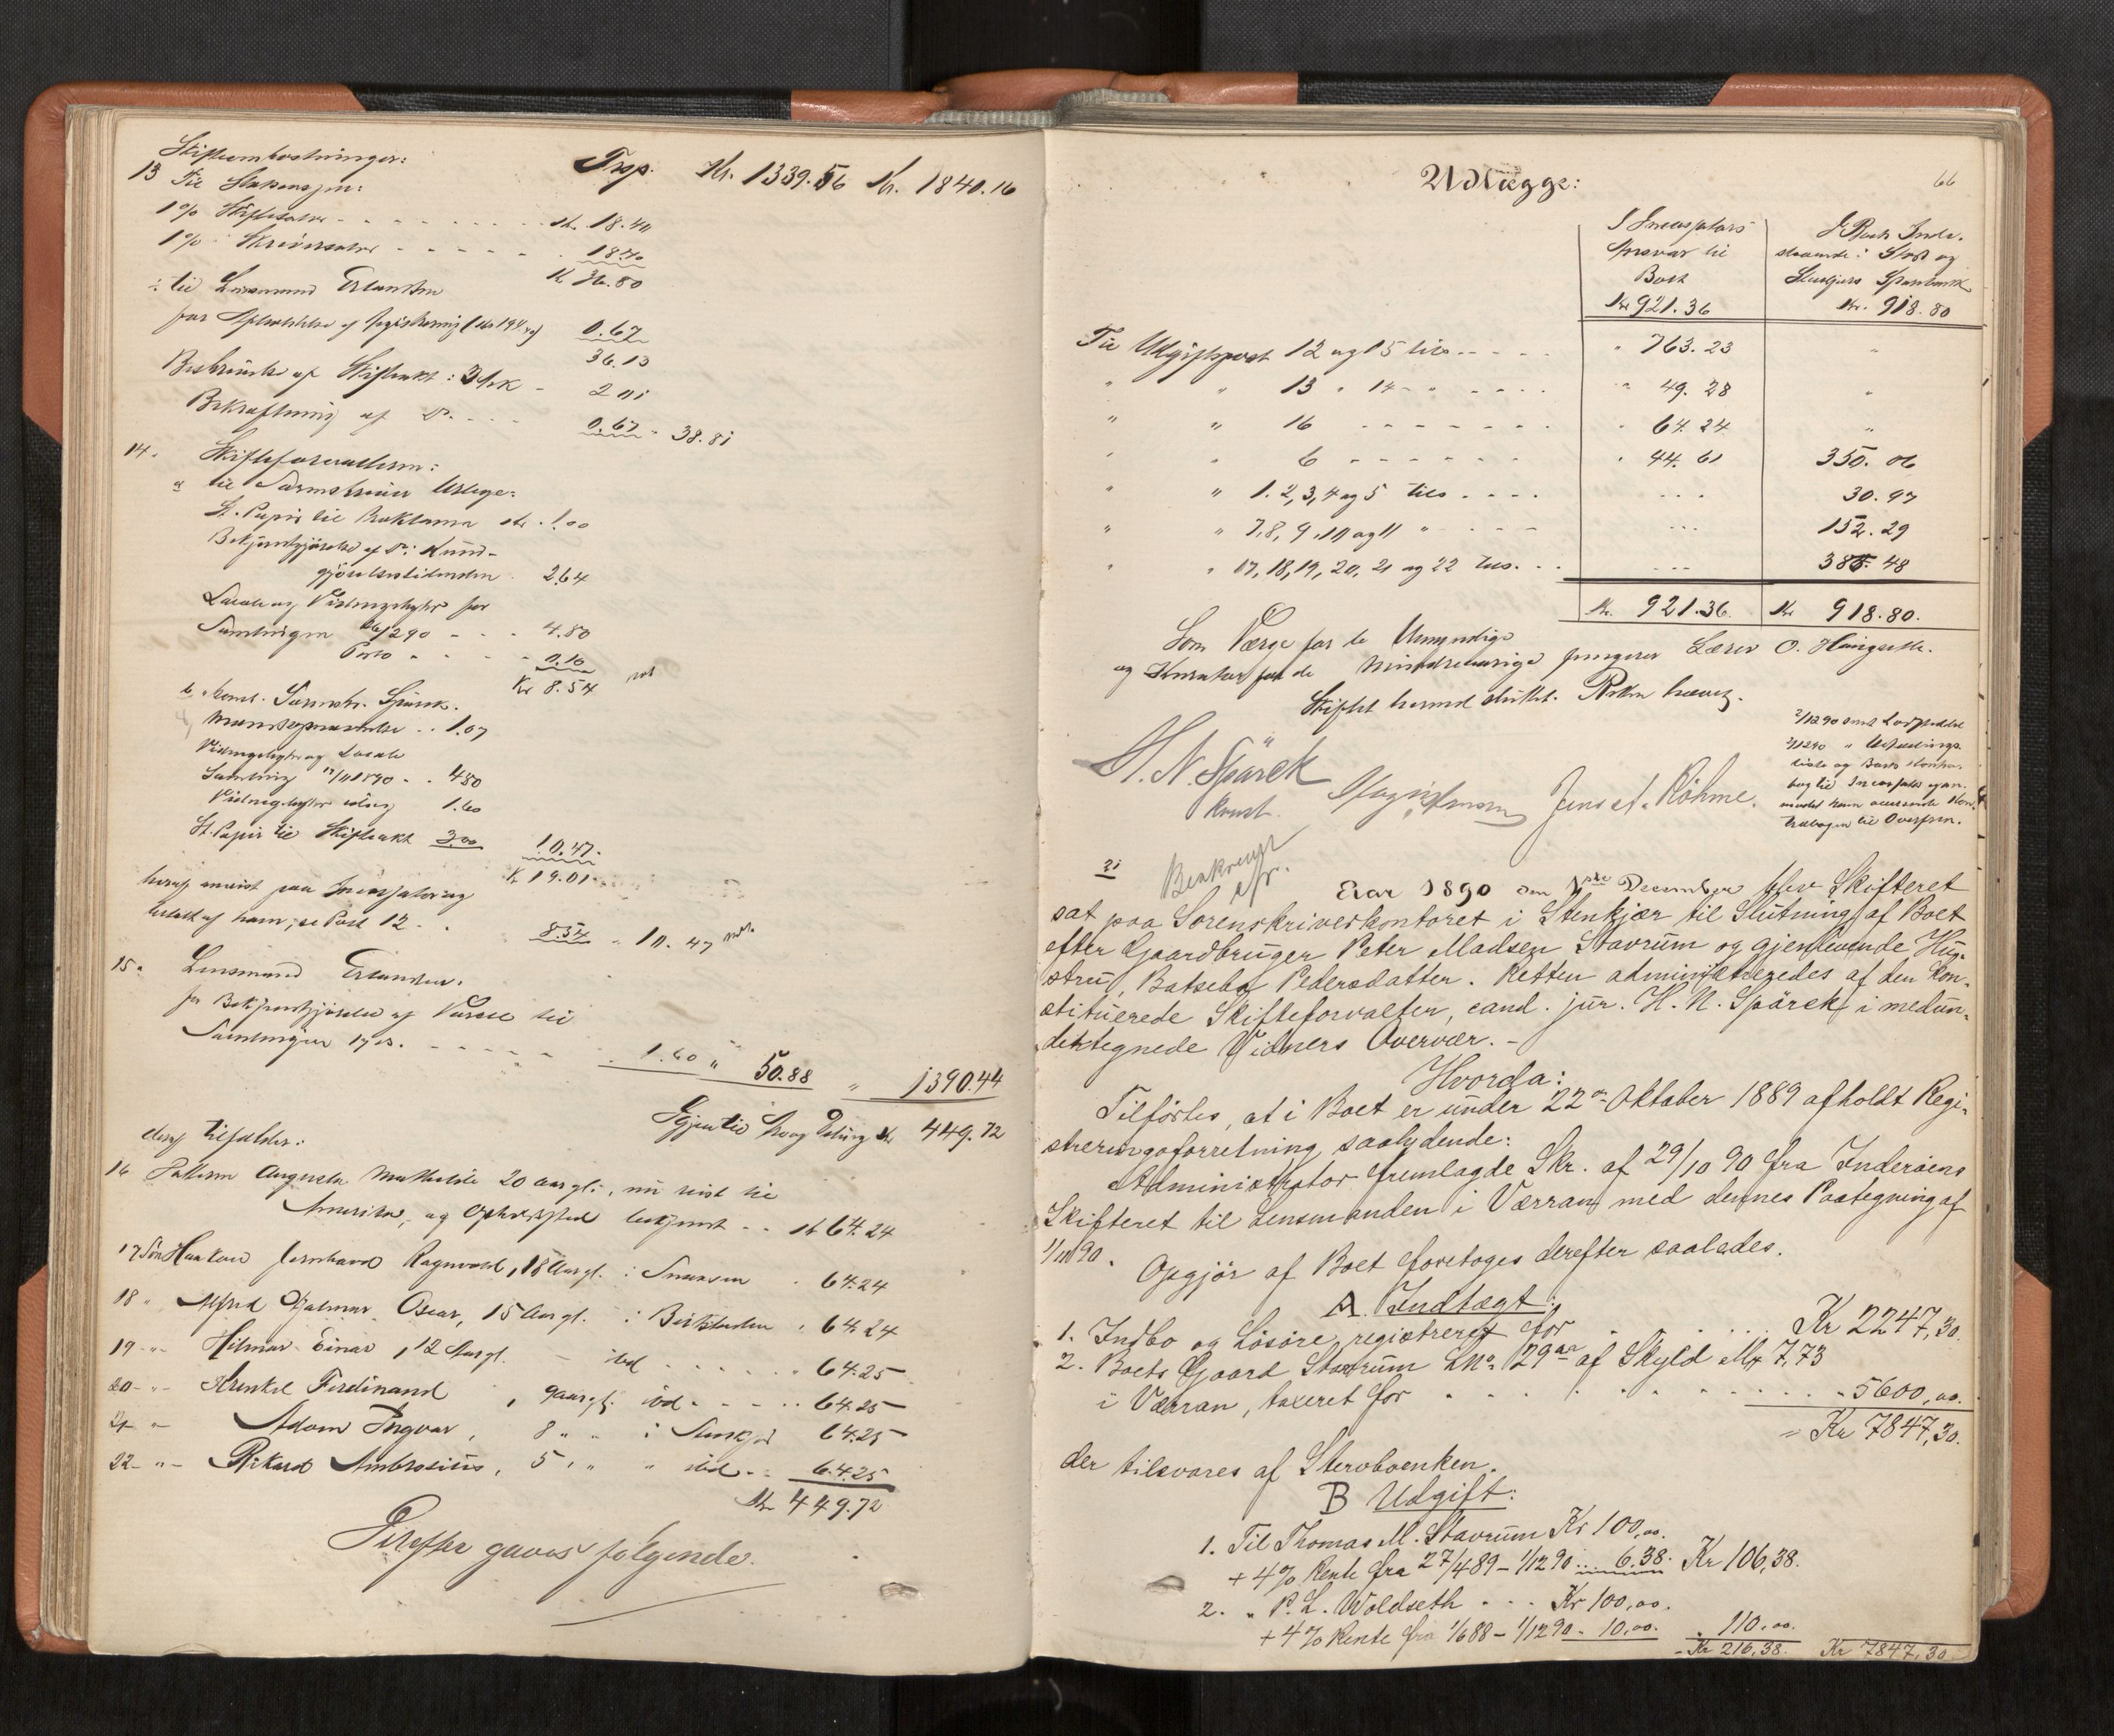 Skifteomkostninger:
Trsp. Kr. 1339.56 Kr. 1840.16
13 Til Statskassen:
1% Skifteafgift - - - Kr. 18.40
1% Skriversalær - - - 18.40
Kr 36.80
÷ til Lensmand Erlandsen
for Afholdelse af Registrering 0.67
36.13
Beskrivelse af Skifteakt: 3 Ark - 2.01
Bekræftning af Do. - - - 0.67 " 38.81
14. Skifteforvalteren:
a til Sorenskriver Udlæg:
St. Papir til Proklama Kr. 1.00
Bekjendtgjørelse af Do i Kund-
gjørelsestidenden 2.64
Locale og Vidnegebyhr for
Samlingen - - - 4.80
Porto - - - 0.10
Kr 8.54
b " konst. Sorenskr. Spärck.
1.07
Vidnegebyhr og Locale
Samling 4.80
Vidnegebyhr idag 1.60
St. Papir til Skifteakt 3.00 10.47.
Kr 19.01.
heraf anvist paa Incassator og
betalt af ham, se Post 12 - - 8.54 " 10.47
15. Lensmand Erlandsen.
for Bekjendtgjørelse af Varsel til
Samlingen - - - 1.60 " 50.88 " 1390.44
Igjen til Arv og Deling Kr 449.72
deraf tilfalder:
16 Datteren Augusta Mathilde 20 Aar gl., nu reist til
Amerika, og Opholdssted bekjendt - - Kr 64.24
17 Søn Haakon Jernhard Ragnvald, 18 Aar gl. i Snaasen " 64.24
18 " Alfred Hjalmar Oscar, 15 Aar gl. i Beitstaden " 64.24
19 - " - Hilmar Einar, 12 Aar gl. - ibd - - - " 64.25
20 - " - Arenkel Ferdinand, 9 aar gl. ibd - - - 64.25
21 - " Adam Ingvar, 8 " " i Stenkjær 64.25
22 - " - Rikard Ambrosius, 5 " " " ibd - - 64.25
Kr 449.72
Derefter gaves følgende
Udlægge:
66
I Incassators
Ansvar til
Boet
Kr 921.36
I Boets Inde-
staaende i Stod og
Stenkjærs Sparebank
Kr. 918.80
Til Udgiftspost 12 og 15 tils - - - " 763.23 "
" " 13 " 14 - " - - - " 49.28 "
" " 16 - - - - " 64.24 "
" " 6 - - - - " 44.61 350.06
" " 1. 2, 3, 4 og 5 tils - - - - - - 30.97
" " 7, 8, 9, 10 og 11 " - - - - - - 152.29
" " 17, 18, 19, 20, 21 og 22 tils. - - - - - 385.48
Kr. 921.36 Kr 918.80.
Som Værge for de Umyndige
og Kurator for de Mindreaarige fungerer Lærer O. Haugseth.
Skiftet hermed sluttet. Retten hævet.
H. N. Spärck
konst.
Jens A. Röhme.
21
Eaar 1890 den 1ste December blev Skifteret
sat paa Sorenskriverkontoret i Stenkjær til Slutning af Boet
efter Gaardbruger Peter Madsen Stavrum og gjenlevende Hu-
stru, Batseba Pedersdatter. Retten administreredes af den kon-
stituerede Skifteforvalter, cand. jur. H. N. Spärck i medun-
dertegnede Vidners Overvær. -
Hvorda:
Tilførtes, at i Boet er under 22de Oktober 1889 afholdt Regi-
streringsforretning saalydende:
Administrator fremlagde Skr. af 29/10 90 fra Inderøens
Skifteret til Lensmanden i Værran med dennes Paategning af
1/11 90.
Opgjør af Boet foretoges derefter saaledes.
A. Indtægt:
1. Indbo og Løsøre, registreret for . . . . . . Kr 2247,30.
2. Boets Gaard Stavrum LNo 29 aa af Skyld Mk 7,73
i Værran, taxeret for - - - - - - - - " 5600,00.
= Kr 7847,30.
der tilsvares af Stervboenken.
B Udgift:
1. Til Thomas M. Stavrum Kr 100,00.
+ 4% Rente fra 27/4 89 - 1/12 90 .. 6.38. Kr 106,38.
2. " P. L. Woldseth - - - Kr 100,00.
+ 4% Rente fra 1/6 88 - 1/12 90 - 10,00. " 110.00.
- Kr 216,38. Kr 7847,30